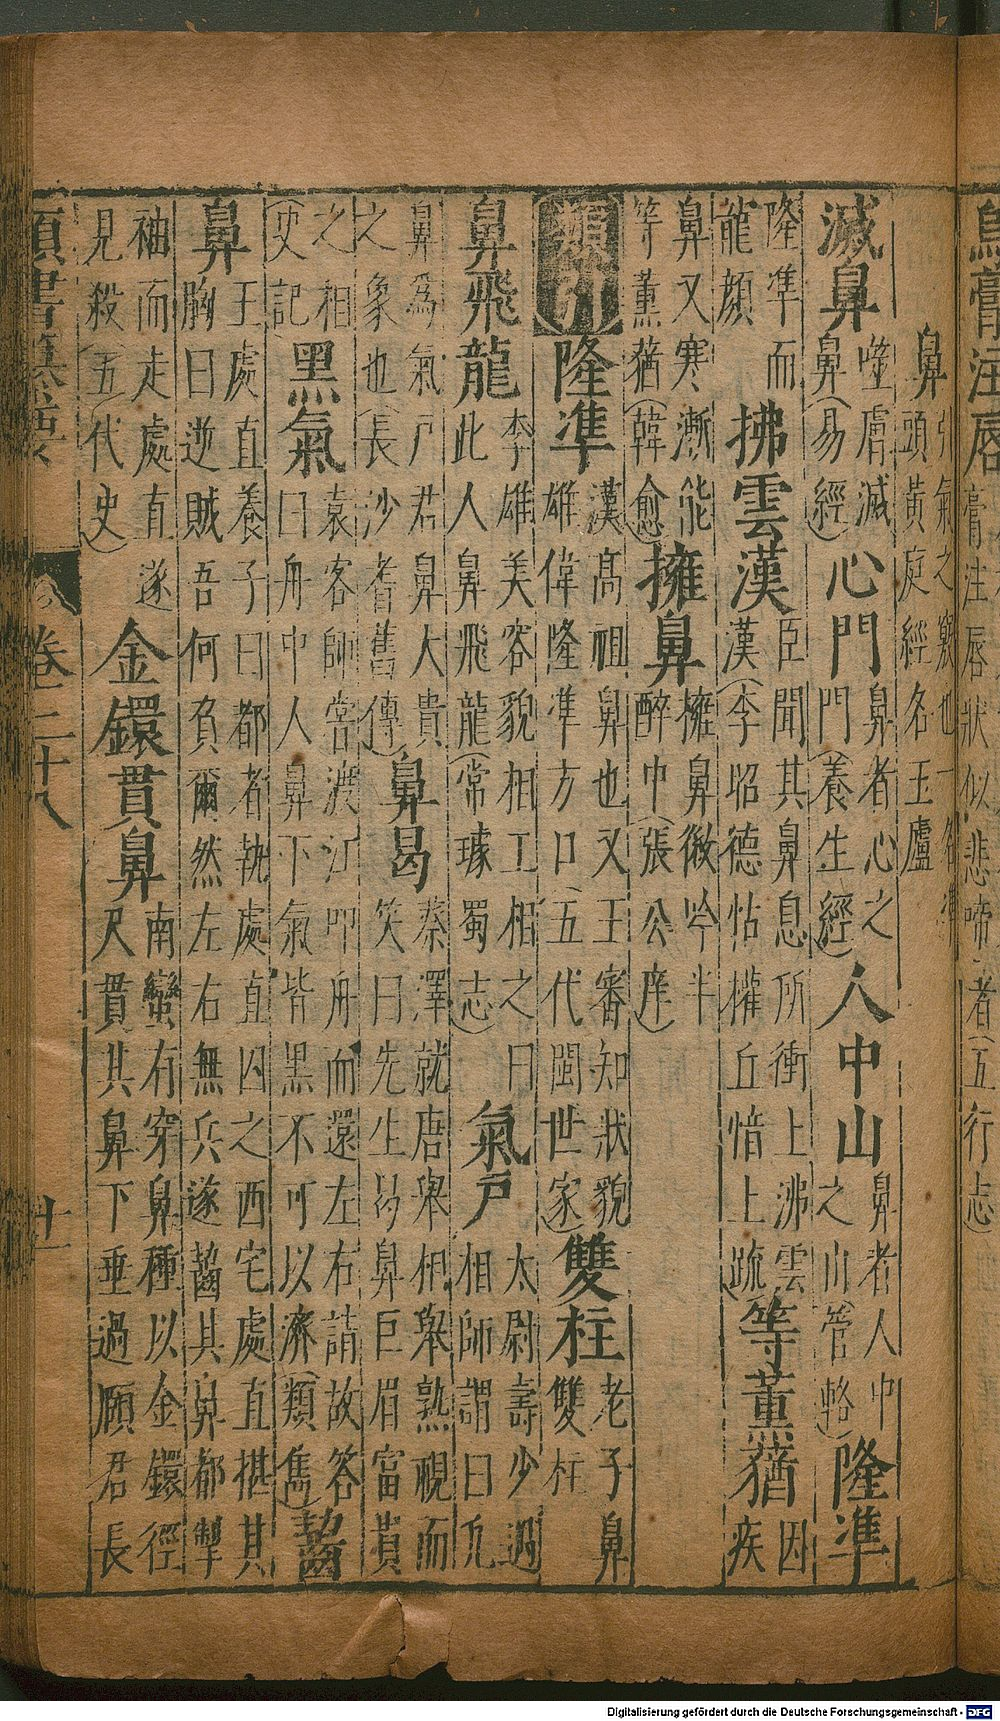 烏膏注唇
膏注唇狀似悲啼者(五行志)
鼻
引氣之竅也一名準
頭黃庭經名玉廬
滅鼻
噬膚滅
鼻(易經)
心門
鼻者心之
門(養生經)
人中山
鼻者人中
之山(管輅)
隆準
隆準而
龍顏
拂雲漢
臣聞其鼻息所衝上沸雲
漢(李昭德怙權丘愔上疏)
等薰蕕
因
疾
鼻又寒漸能
等薰蕕(韓愈)
擁鼻
擁鼻微吟半
醉中(張公庠)
類引
隆準
漢高祖鼻也又王審知狀貌
雄偉隆準方口(五代閩世家)
雙柱
老子鼻
雙柱
鼻飛龍
李雄美容貌相工相之曰
此人鼻飛龍(常璩蜀志)
氣戶
太尉壽少遇
相師謂曰凡
鼻為氣戶君鼻大貴
之象也(長沙耆舊傳)
鼻曷
蔡澤就唐舉相舉熟視而
笑曰先生曷鼻巨眉富貴
之相
(史記)
黑氣
袁客師嘗渡江叩舟而還左右請故答
曰舟中人鼻下氣皆黑不可以濟(類雋)
齧
鼻
王處直養子曰都者執處直囚之西宅處直揕其
胸曰逆賊吾何負爾然左右無兵遂齧其鼻都掣
袖而走處直遂
見殺(五代史)
金鐶貫鼻
南蠻有穿鼻種以金鐶徑
尺貫其鼻下垂過頤君長
類書纂要 卷二十八 廿一
Digitalisierung gefördert durch die Deutsche Forschungsgemeinschaft - DFG